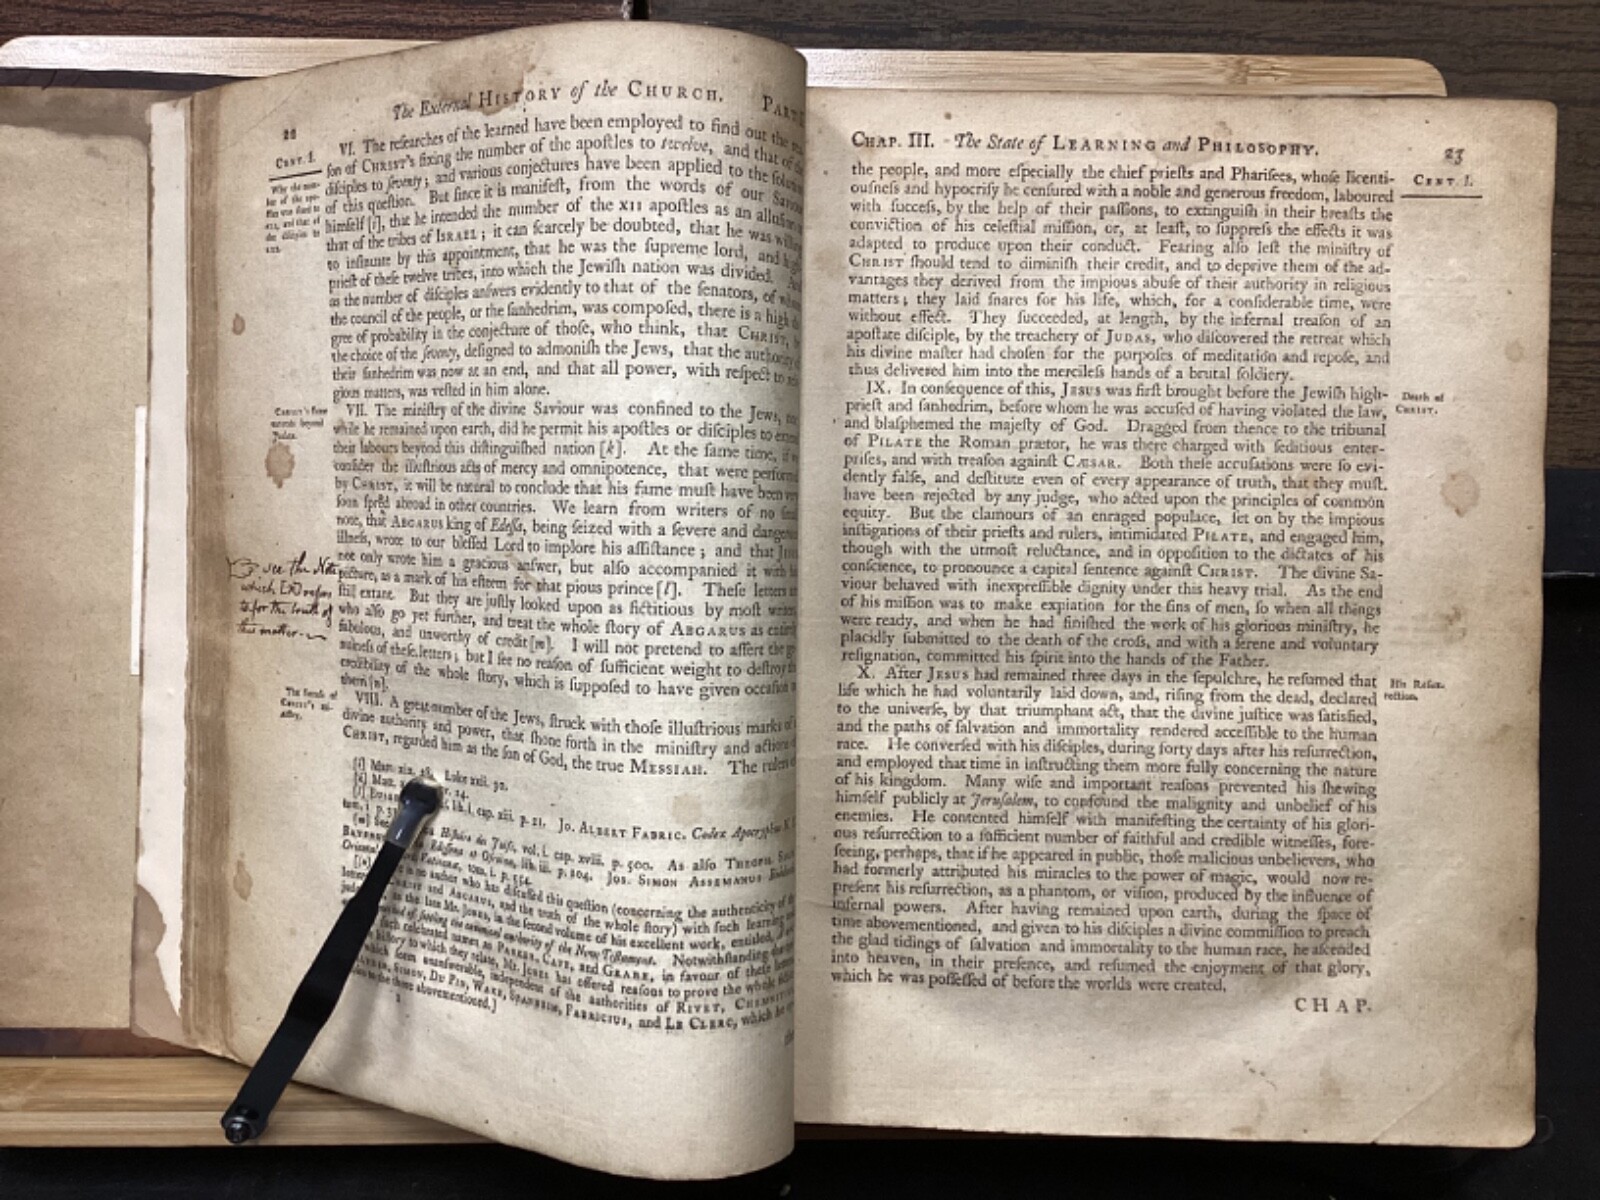 The External HISTORY of the CHURCH. PART
CENT. I.
VI. The reſearches of the learned have been employed to find out the
ſon of CHRIST's fixing the number of the apoſtles to twelve, and that of
diſciples to ſeventy; and various conjectures have been applied to the
of this queſtion. But ſince it is manifeſt, from the words of our
himſelf [i], that he intended the number of the XII apoſtles as an
that of the tribes of ISRAEL; it can ſcarcely be doubted, that he was
to inſinuate by this appointment, that he was the ſupreme lord, and
prieſt of theſe twelve tribes, into which the Jewiſh nation was divided.
as the number of diſciples anſwers evidently to that of the ſenators, of
the council of the people, or the ſanhedrim, was compoſed, there is a high
gree of probability in the conjecture of thoſe, who think, that CHRIST,
the choice of the ſeventy, deſigned to admoniſh the Jews, that the
their ſanhedrim was now at an end, and that all power, with reſpect to
gious matters, was veſted in him alone.
VII. The miniſtry of the divine Saviour was confined to the Jews,
while he remained upon earth, did he permit his apoſtles or diſciples to
their labours beyond this diſtinguiſhed nation [k]. At the ſame time,
conſider the illuſtrious acts of mercy and omnipotence, that were
by CHRIST, it will be natural to conclude that his fame muſt have been
ſoon ſpread abroad in other countries. We learn from writers of no
note, that ABGARUS king of Edeſſa, being ſeized with a ſevere and
illneſs, wrote to our bleſſed Lord to implore his aſſiſtance; and that
not only wrote him a gracious anſwer, but alſo accompanied it with
picture, as a mark of his eſteem for that pious prince [l]. Theſe letters
ſtill extant. But they are juſtly looked upon as fictitious by moſt
who alſo go yet further, and treat the whole ſtory of ABGARUS as
fabulous, and unworthy of credit [m]. I will not pretend to aſſert the
of theſe letters; but I ſee no reaſon of ſufficient weight to deſtroy
credibility of the whole ſtory, which is ſuppoſed to have given
them [n].
VIII. A great number of the Jews, ſtruck with thoſe illuſtrious marks of
divine authority and power, that ſhone forth in the miniſtry and
CHRIST, regarded him as the ſon of God, the true MESSIAH. The
see the Note
which [n] refers
to for the truth of
this matter
[i] Luke xxii. 30.
lib. i. cap. xiii. p. 21. JO. ALBERT FABRIC. Codex
Hiſtoire des Juifs, vol. i. cap. xviii. p. 500. As alſo
lib. iii. p. 104. JOS. SIMON ASSEMANUS
tom. i. p. 554.
who has diſcuſſed this queſtion (concerning the authenticity of
and ABGARUS, and the truth of the whole ſtory) with ſuch
as the late Mr. JONES, in the ſecond volume of his excellent work, entitled,
of the New Teſtament. Notwithſtanding
ſuch celebrated names as PARKER, CAVE, and GRABE, in favour of theſe
hiſtory to which they relate, Mr. JONES has offered reaſons to prove the whole
unanſwerable, independent of the authorities of RIVET,
SIMON, DU PIN, WAKE, SPANHEIM, FABRICIUS, and LE CLERC, which he
abovementioned.]
CHAP. III. The State of LEARNING and PHILOSOPHY. 23
CENT. I.
the people, and more eſpecially the chief prieſts and Phariſees, whoſe licenti-
ouſneſs and hypocriſy he cenſured with a noble and generous freedom, laboured
with ſucceſs, by the help of their paſſions, to extinguiſh in their breaſts the
conviction of his celeſtial miſſion, or, at leaſt, to ſuppreſs the effects it was
adapted to produce upon their conduct. Fearing alſo leſt the miniſtry of
CHRIST ſhould tend to diminiſh their credit, and to deprive them of the ad-
vantages they derived from the impious abuſe of their authority in religious
matters; they laid ſnares for his life, which, for a conſiderable time, were
without effect. They ſucceeded, at length, by the infernal treaſon of an
apoſtate diſciple, by the treachery of JUDAS, who diſcovered the retreat which
his divine maſter had choſen for the purpoſes of meditation and repoſe, and
thus delivered him into the mercileſs hands of a brutal ſoldiery.
IX. In conſequence of this, JESUS was firſt brought before the Jewiſh high-
prieſt and ſanhedrim, before whom he was accuſed of having violated the law,
and blaſphemed the majeſty of God. Dragged from thence to the tribunal
of PILATE the Roman prætor, he was there charged with ſeditious enter-
priſes, and with treaſon againſt CÆSAR. Both theſe accuſations were ſo evi-
dently falſe, and deſtitute even of every appearance of truth, that they muſt
have been rejected by any judge, who acted upon the principles of common
equity. But the clamours of an enraged populace, ſet on by the impious
inſtigations of their prieſts and rulers, intimidated PILATE, and engaged him,
though with the utmoſt reluctance, and in oppoſition to the dictates of his
conſcience, to pronounce a capital ſentence againſt CHRIST. The divine Sa-
viour behaved with inexpreſſible dignity under this heavy trial. As the end
of his miſſion was to make expiation for the ſins of men, ſo when all things
were ready, and when he had finiſhed the work of his glorious miniſtry, he
placidly ſubmitted to the death of the croſs, and with a ſerene and voluntary
reſignation, committed his ſpirit into the hands of the Father.
Death of
CHRIST.
X. After JESUS had remained three days in the ſepulchre, he reſumed that
life which he had voluntarily laid down, and, riſing from the dead, declared
to the univerſe, by that triumphant act, that the divine juſtice was ſatisfied,
and the paths of ſalvation and immortality rendered acceſſible to the human
race. He converſed with his diſciples, during forty days after his reſurrection,
and employed that time in inſtructing them more fully concerning the nature
of his kingdom. Many wiſe and important reaſons prevented his ſhewing
himſelf publicly at Jeruſalem, to confound the malignity and unbelief of his
enemies. He contented himſelf with manifeſting the certainty of his glori-
ous reſurrection to a ſufficient number of faithful and credible witneſſes, fore-
ſeeing, perhaps, that if he appeared in public, thoſe malicious unbelievers, who
had formerly attributed his miracles to the power of magic, would now re-
preſent his reſurrection, as a phantom, or viſion, produced by the influence of
infernal powers. After having remained upon earth, during the ſpace of
time abovementioned, and given to his diſciples a divine commiſſion to preach
the glad tidings of ſalvation and immortality to the human race, he aſcended
into heaven, in their preſence, and reſumed the enjoyment of that glory,
which he was poſſeſſed of before the worlds were created.
His Reſur-
rection.
CHAP.